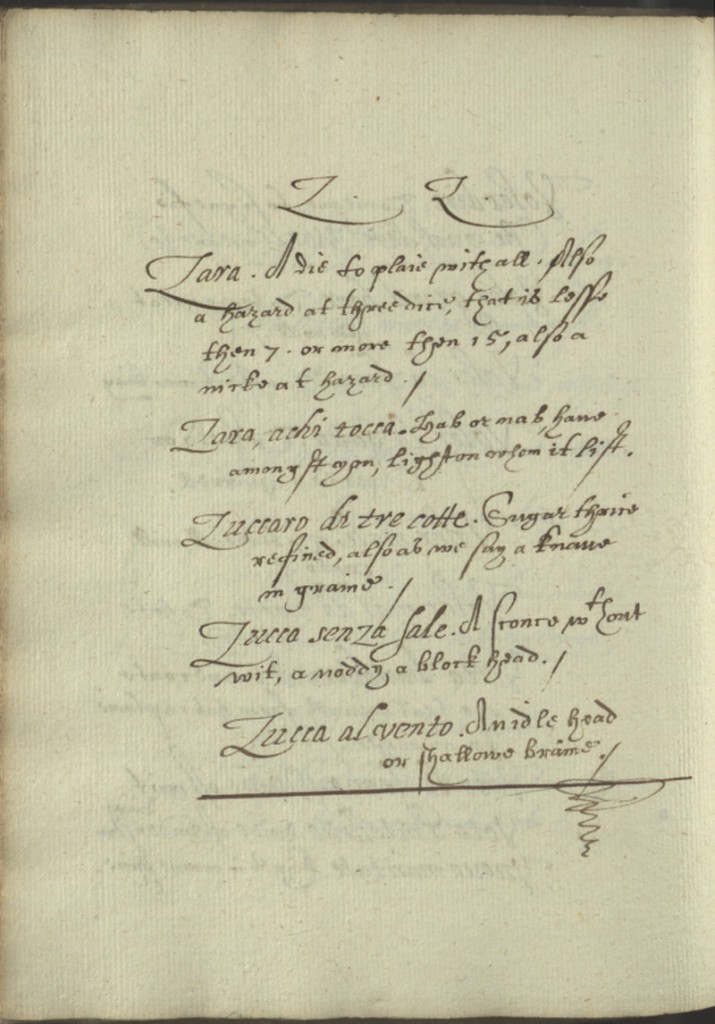 Z Z
Zara. A die to plaie with all. Also
a hazard at three dice, that is lesse
then 7. or more then 15, also a
nicke at hazard. /
Zara, achi tocca. Hab or nab, have
amongst yow, light on whom it list.
Zuccaro di tre cotte. Sugar thrice
refined, also as we say a knaue
in graine. /
Zucca senza sale. A sconce wthout
wit, a noddy, a block head. /
Zucca al vento. An idle head
or shallowe braine. /